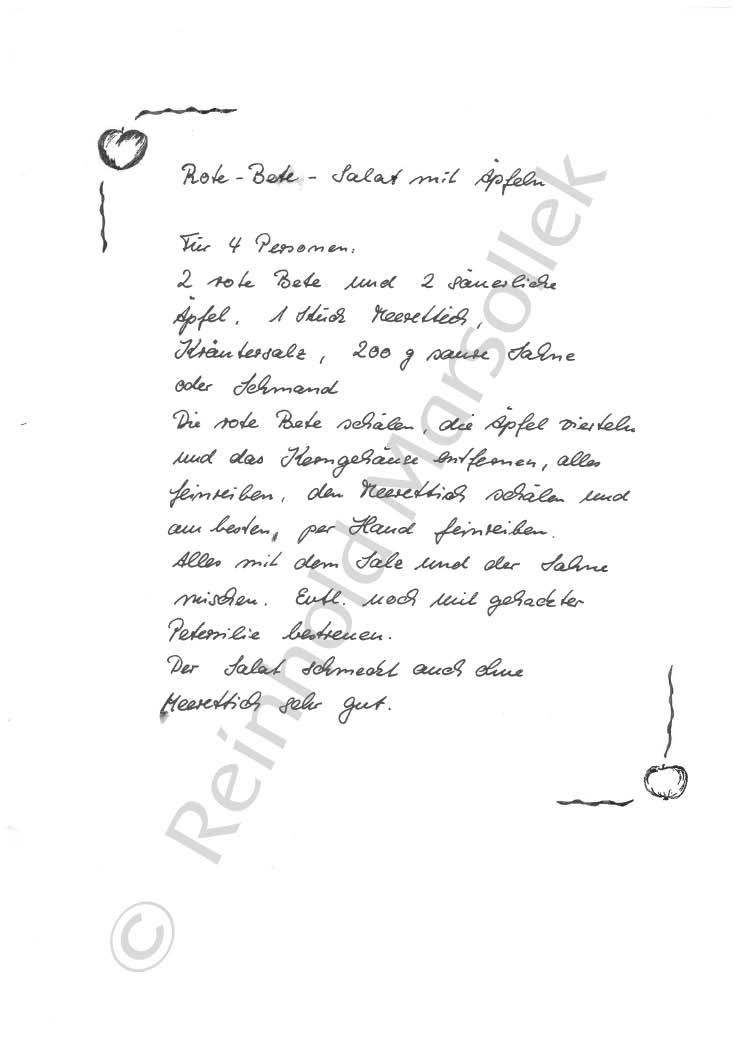 Rote-Bete-Salat mit Äpfeln
Für 4 Personen:
2 rote Bete und 2 säuerliche
Äpfel, 1 Stück Meerettich,
Kräutersalz, 200 g saure Sahne
oder Schmand
Die rote Bete schälen, die Äpfel vierteln
und das Kerngehäuse entfernen, alles
feinreiben, den Meerettich schälen und
am besten, per Hand feinreiben.
Alles mit dem Salz und der Sahne
mischen. Evtl. noch mit gehackter
Petersilie bestreuen.
Der Salat schmeckt auch ohne
Meerettich sehr gut.
© Reinhold Marsollek